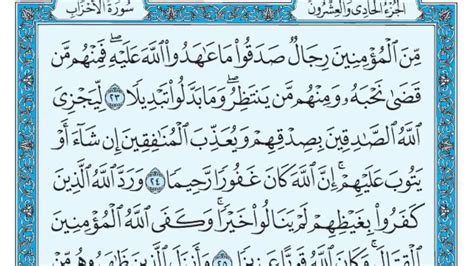 الجزء الحادي والعشرون
سورة الأحزاب
مِّنَ ٱلْمُؤْمِنِينَ رِجَالٌ صَدَقُوا۟ مَا عَٰهَدُوا۟ ٱللَّهَ عَلَيْهِ ۖ فَمِنْهُم مَّن
قَضَىٰ نَحْبَهُۥ وَمِنْهُم مَّن يَنتَظِرُ ۖ وَمَا بَدَّلُوا۟ تَبْدِيلًا ٢٣ لِّيَجْزِىَ
ٱللَّهُ ٱلصَّٰدِقِينَ بِصِدْقِهِمْ وَيُعَذِّبَ ٱلْمُنَٰفِقِينَ إِن شَآءَ أَوْ
يَتُوبَ عَلَيْهِمْ ۚ إِنَّ ٱللَّهَ كَانَ غَفُورًا رَّحِيمًا ٢٤ وَرَدَّ ٱللَّهُ ٱلَّذِينَ
كَفَرُوا۟ بِغَيْظِهِمْ لَمْ يَنَالُوا۟ خَيْرًا ۚ وَكَفَى ٱللَّهُ ٱلْمُؤْمِنِينَ
ٱلْقِتَالَ ۚ وَكَانَ ٱللَّهُ قَوِيًّا عَزِيزًا ٢٥ وَأَنزَلَ ٱلَّذِينَ ظَٰهَرُوهُم مِّنْ